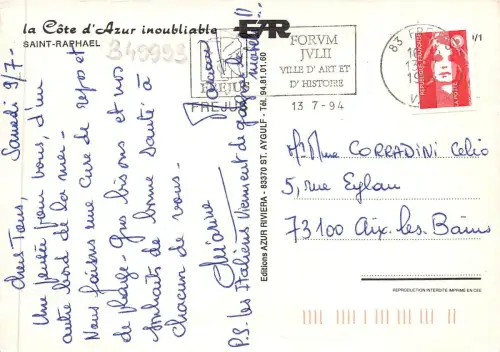 la Côte d'Azur inoubliable
SAINT-RAPHAEL
349993
EAR
Samedi 9/7-
chers Tous,
Une pensée pour vous, d'un
autre bord de la mer-
Nous faisons une cure de repos et
de plage- Gros bisous et nos
souhaits de bonne santé à
chacun de vous-
P.S- les Italiens viennent de gagner
FREJUS
FREJUS
FORVM
JVLII
VILLE D'ART ET
D'HISTOIRE
13 7-94
83 FR
V
RÉPUBLIQUE FRANÇAISE
LA POSTE
1/1
Editions AZUR RIVIERA - 83370 ST. AYGULF - Tél. 94.81.01.60
Mr Mme CORRADINI Celio
5, rue Eylau
73100 Aix-les-Bains
REPRODUCTION INTERDITE IMPRIMÉ EN CEE